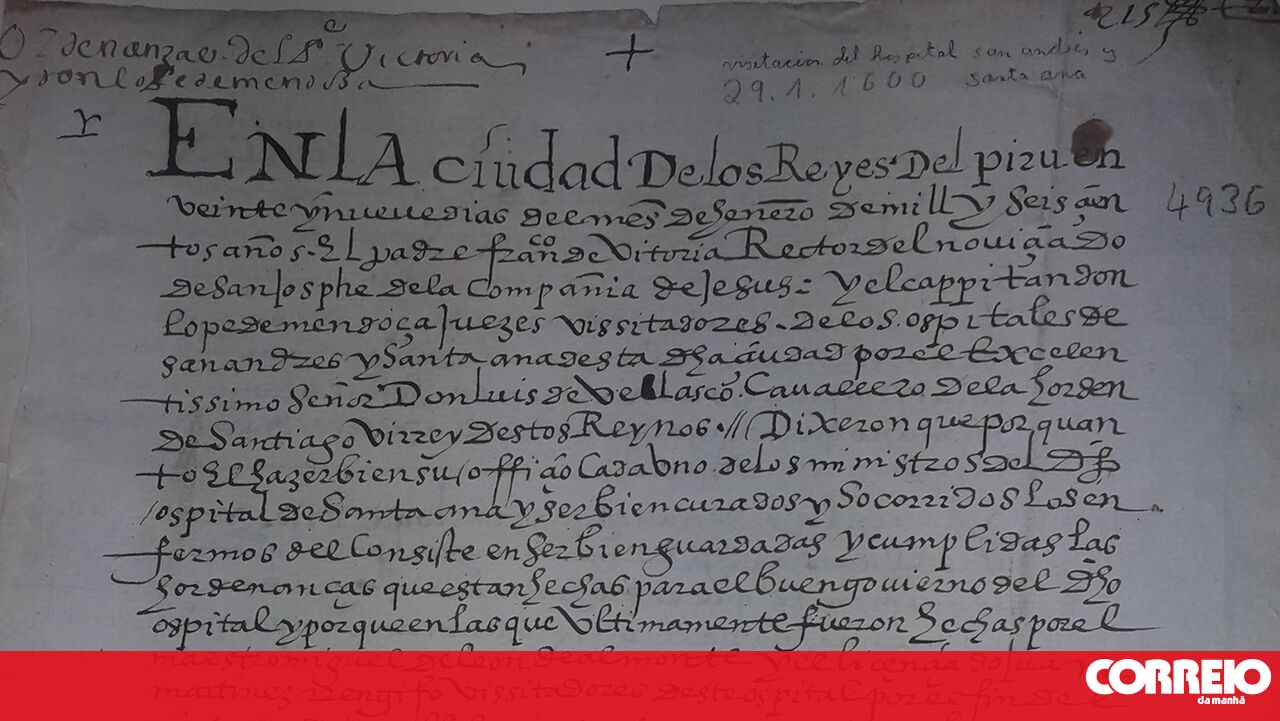 Ordenanzas del Pe Victoria
y don lope de mendoza
+
visitacion del hospital san andrés y
santa ana
29.1.1600
En la ciudad De los Reyes Del piru en
veinte y nueue dias de el mes de henero de mill y seis çien
tos años. El padre franco de Vitoria Rector del nouiçiado
de san Josphe de la Compañia de Jesus: y el cappitan don
lope de mendoça Juezes vissitadores de los ospitales de
san andres y santa ana desta dha çiudad por el Excelen
tissimo señor Don Luis de Vellasco, Cauallero de la horden
de Santiago Virrey destos Reynos // Dixeron que por quan
to El hazer bien su offiçio Cada vno de los ministros del dho
ospital de santa ana y ser bien curados y socorridos los en
fermos del Consiste en ser bien guardadas y cumplidas las
hordenanças que estan hechas para el buen gouierno del dho
ospital y porque en las que Vltimamente fueron hechas por el
maestro miguel de leon de almonte y el liçençiado
martinez rengifo vissitadores deste ospital por el fin de
4936
CORREIO
da manhã